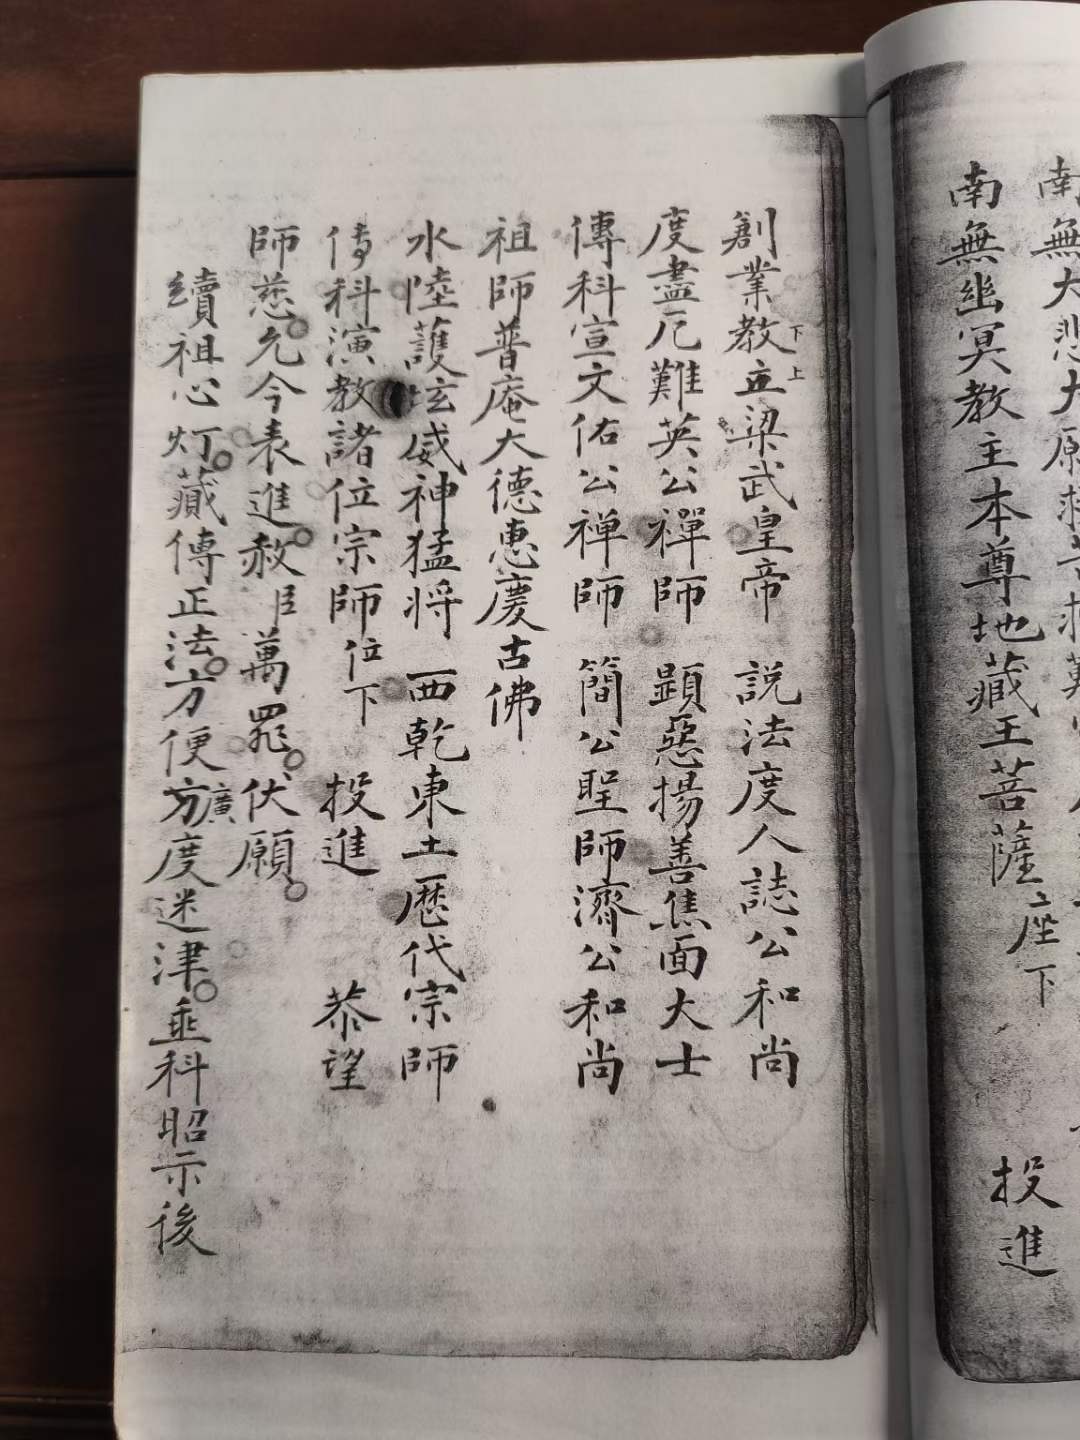 南無大悲大
南無幽冥教主本尊地藏王菩薩座下 投進
創業教立梁武皇帝 説法度人誌公和尚
下上
度盡厄難英公禪師 顕惡揚善焦面大士
傳科宣文佑公禅師 簡公聖師濟公和尚
祖師普庵大德惠慶古佛
水陸護壇威神猛将 西乾東土歷代宗師
傳科演教諸位宗師位下 投進 恭望
師慈允今表進赦臣萬罪伏願
續祖心灯藏傳正法方便方度迷津垂科昭示後
廣